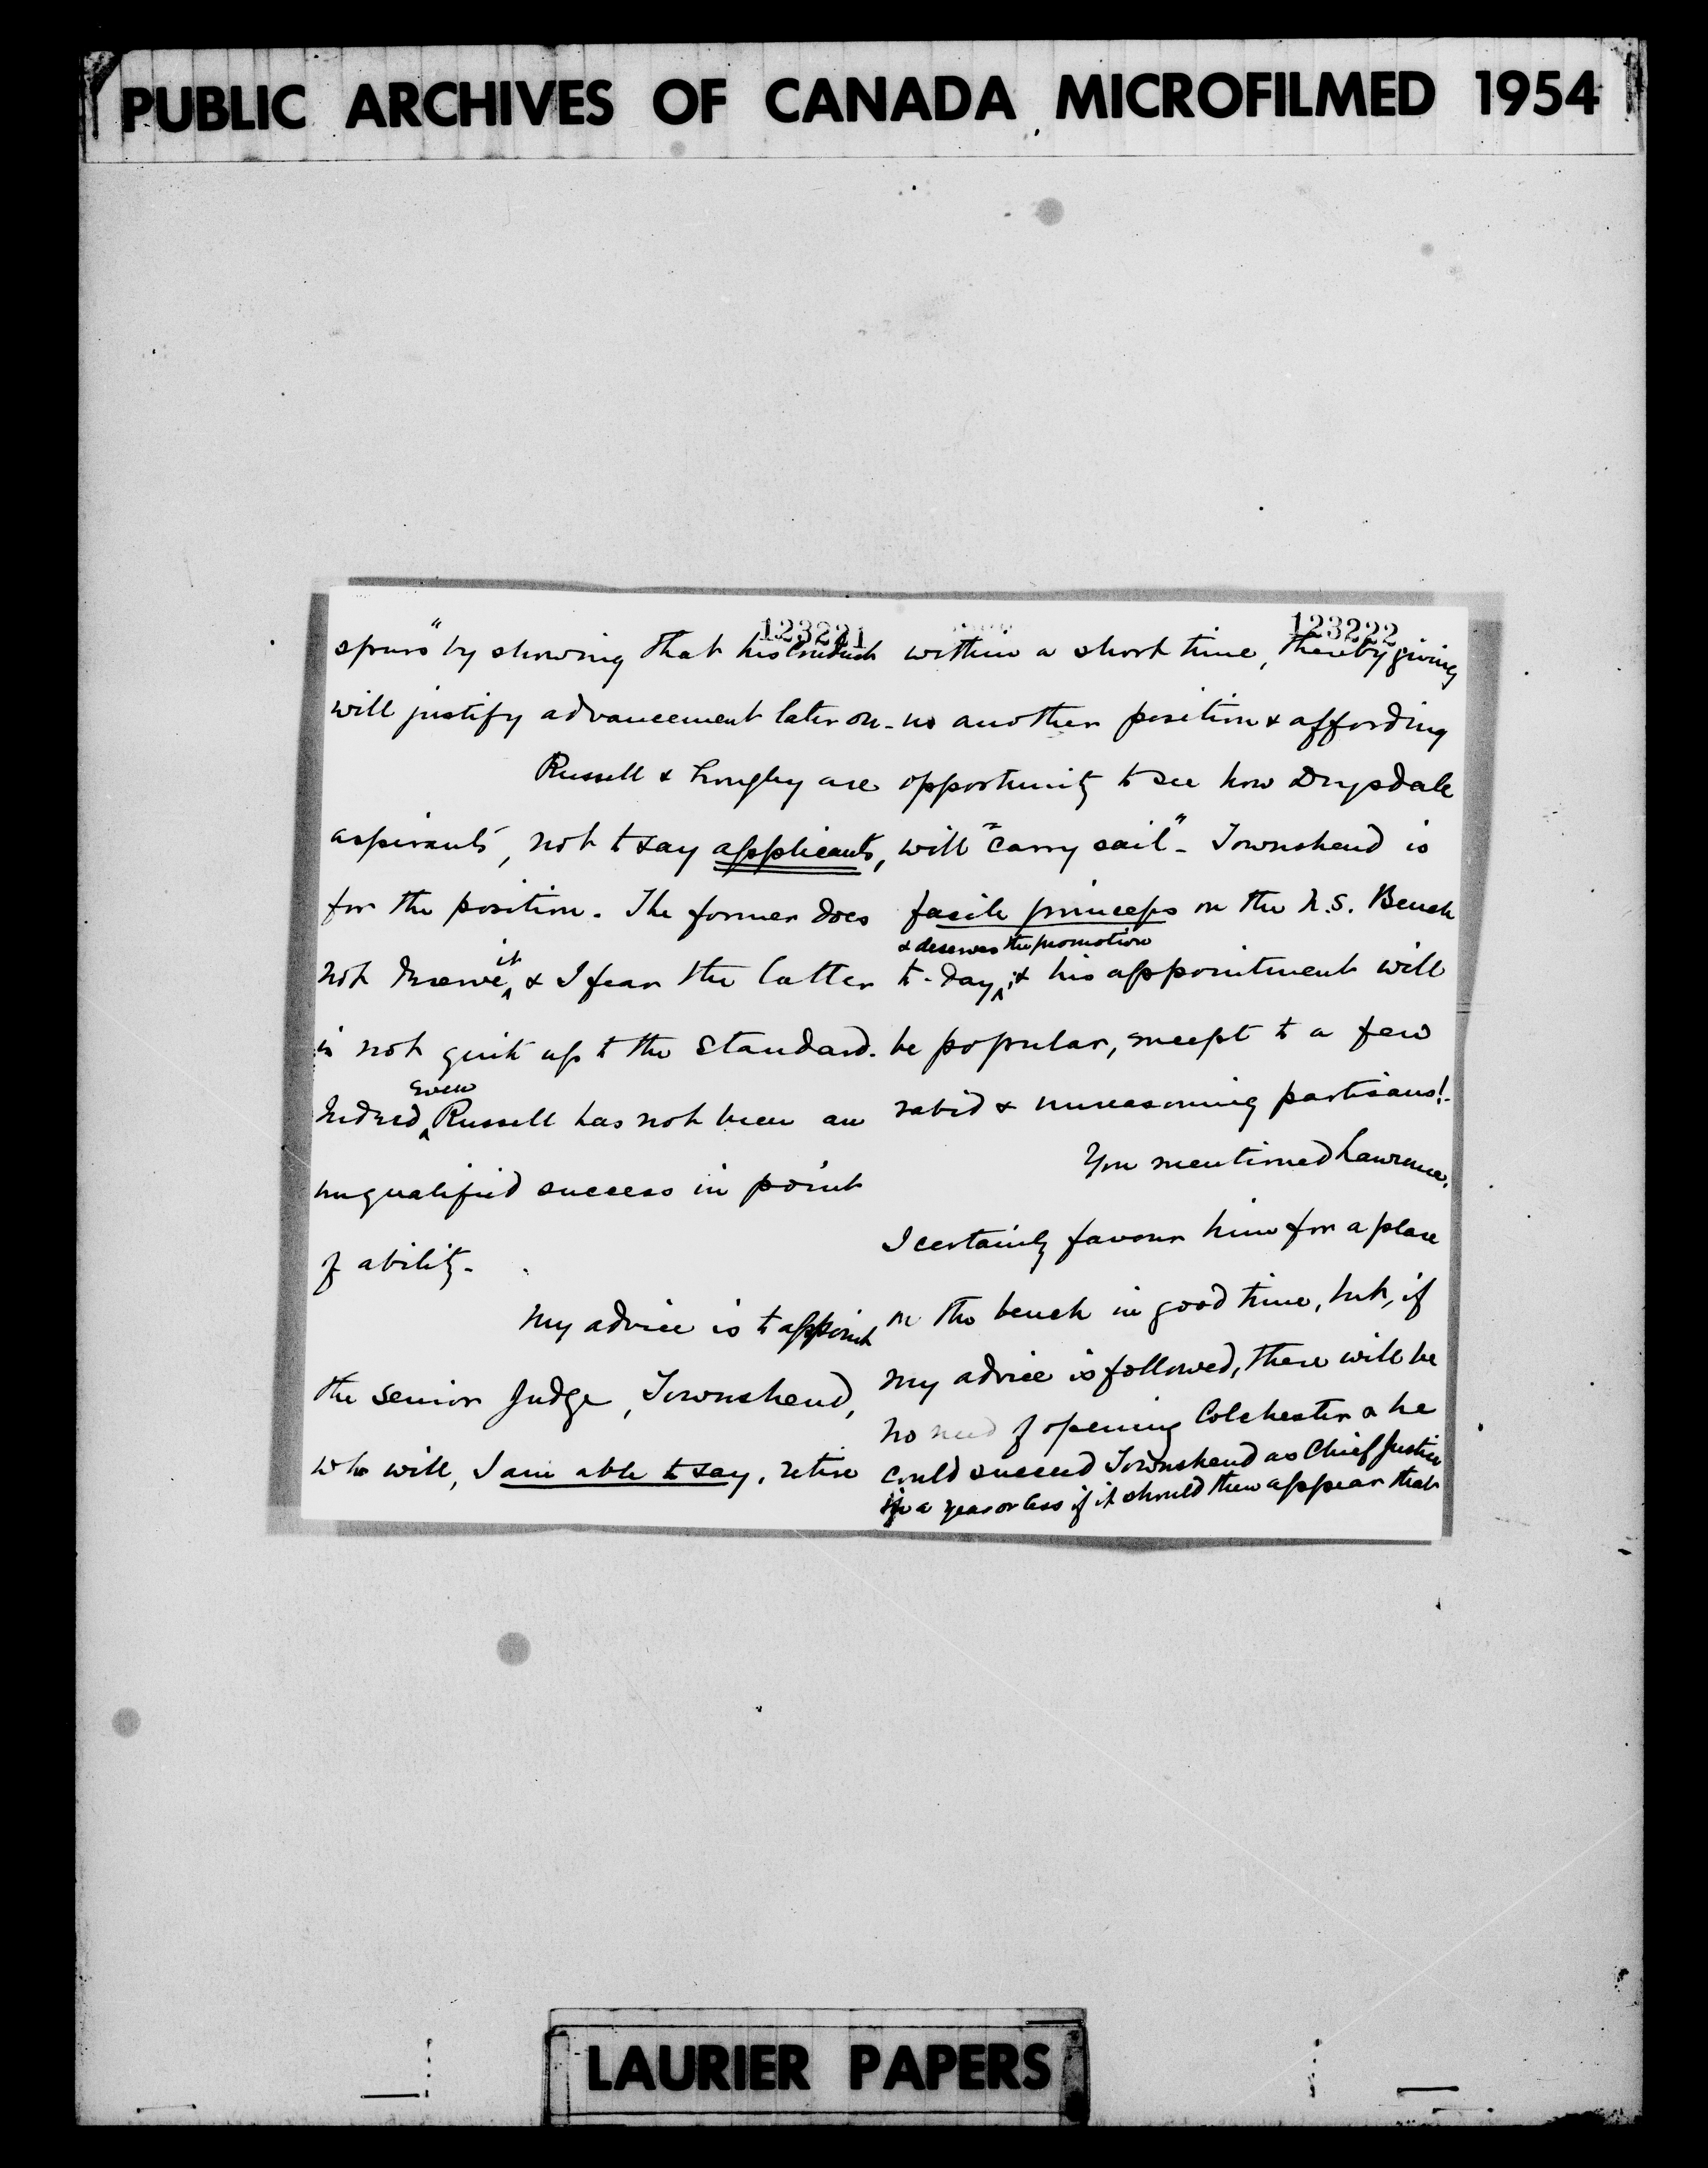 PUBLIC ARCHIVES OF CANADA MICROFILMED 1954
123221
spurs" by showing that his conduct
will justify advancement later on.
Russell & Longley are
aspirants, not to say applicants,
for the position. The former does
not deserve it & I fear the latter
is not quite up to the standard.
Indeed even Russell has not been an
unqualified success in point
of ability.
My advice is to appoint
the senior Judge, Townshend,
who will, I am able to say, retire
123222
within a short time, thereby giving
us another position & affording
opportunity to see how Drysdale
will "carry sail". Townshend is
facile princeps on the N.S. Bench
to-day, & deserves the promotion & his appointment will
be popular, except to a few
rabid & unreasoning partisans!
You mentioned Lawrence.
I certainly favour him for a place
on the bench in good time, but, if
my advice is followed, there will be
no need of opening Colchester & he
could succeed Townshend as Chief Justice
in a year or less if it should then appear that
LAURIER PAPERS